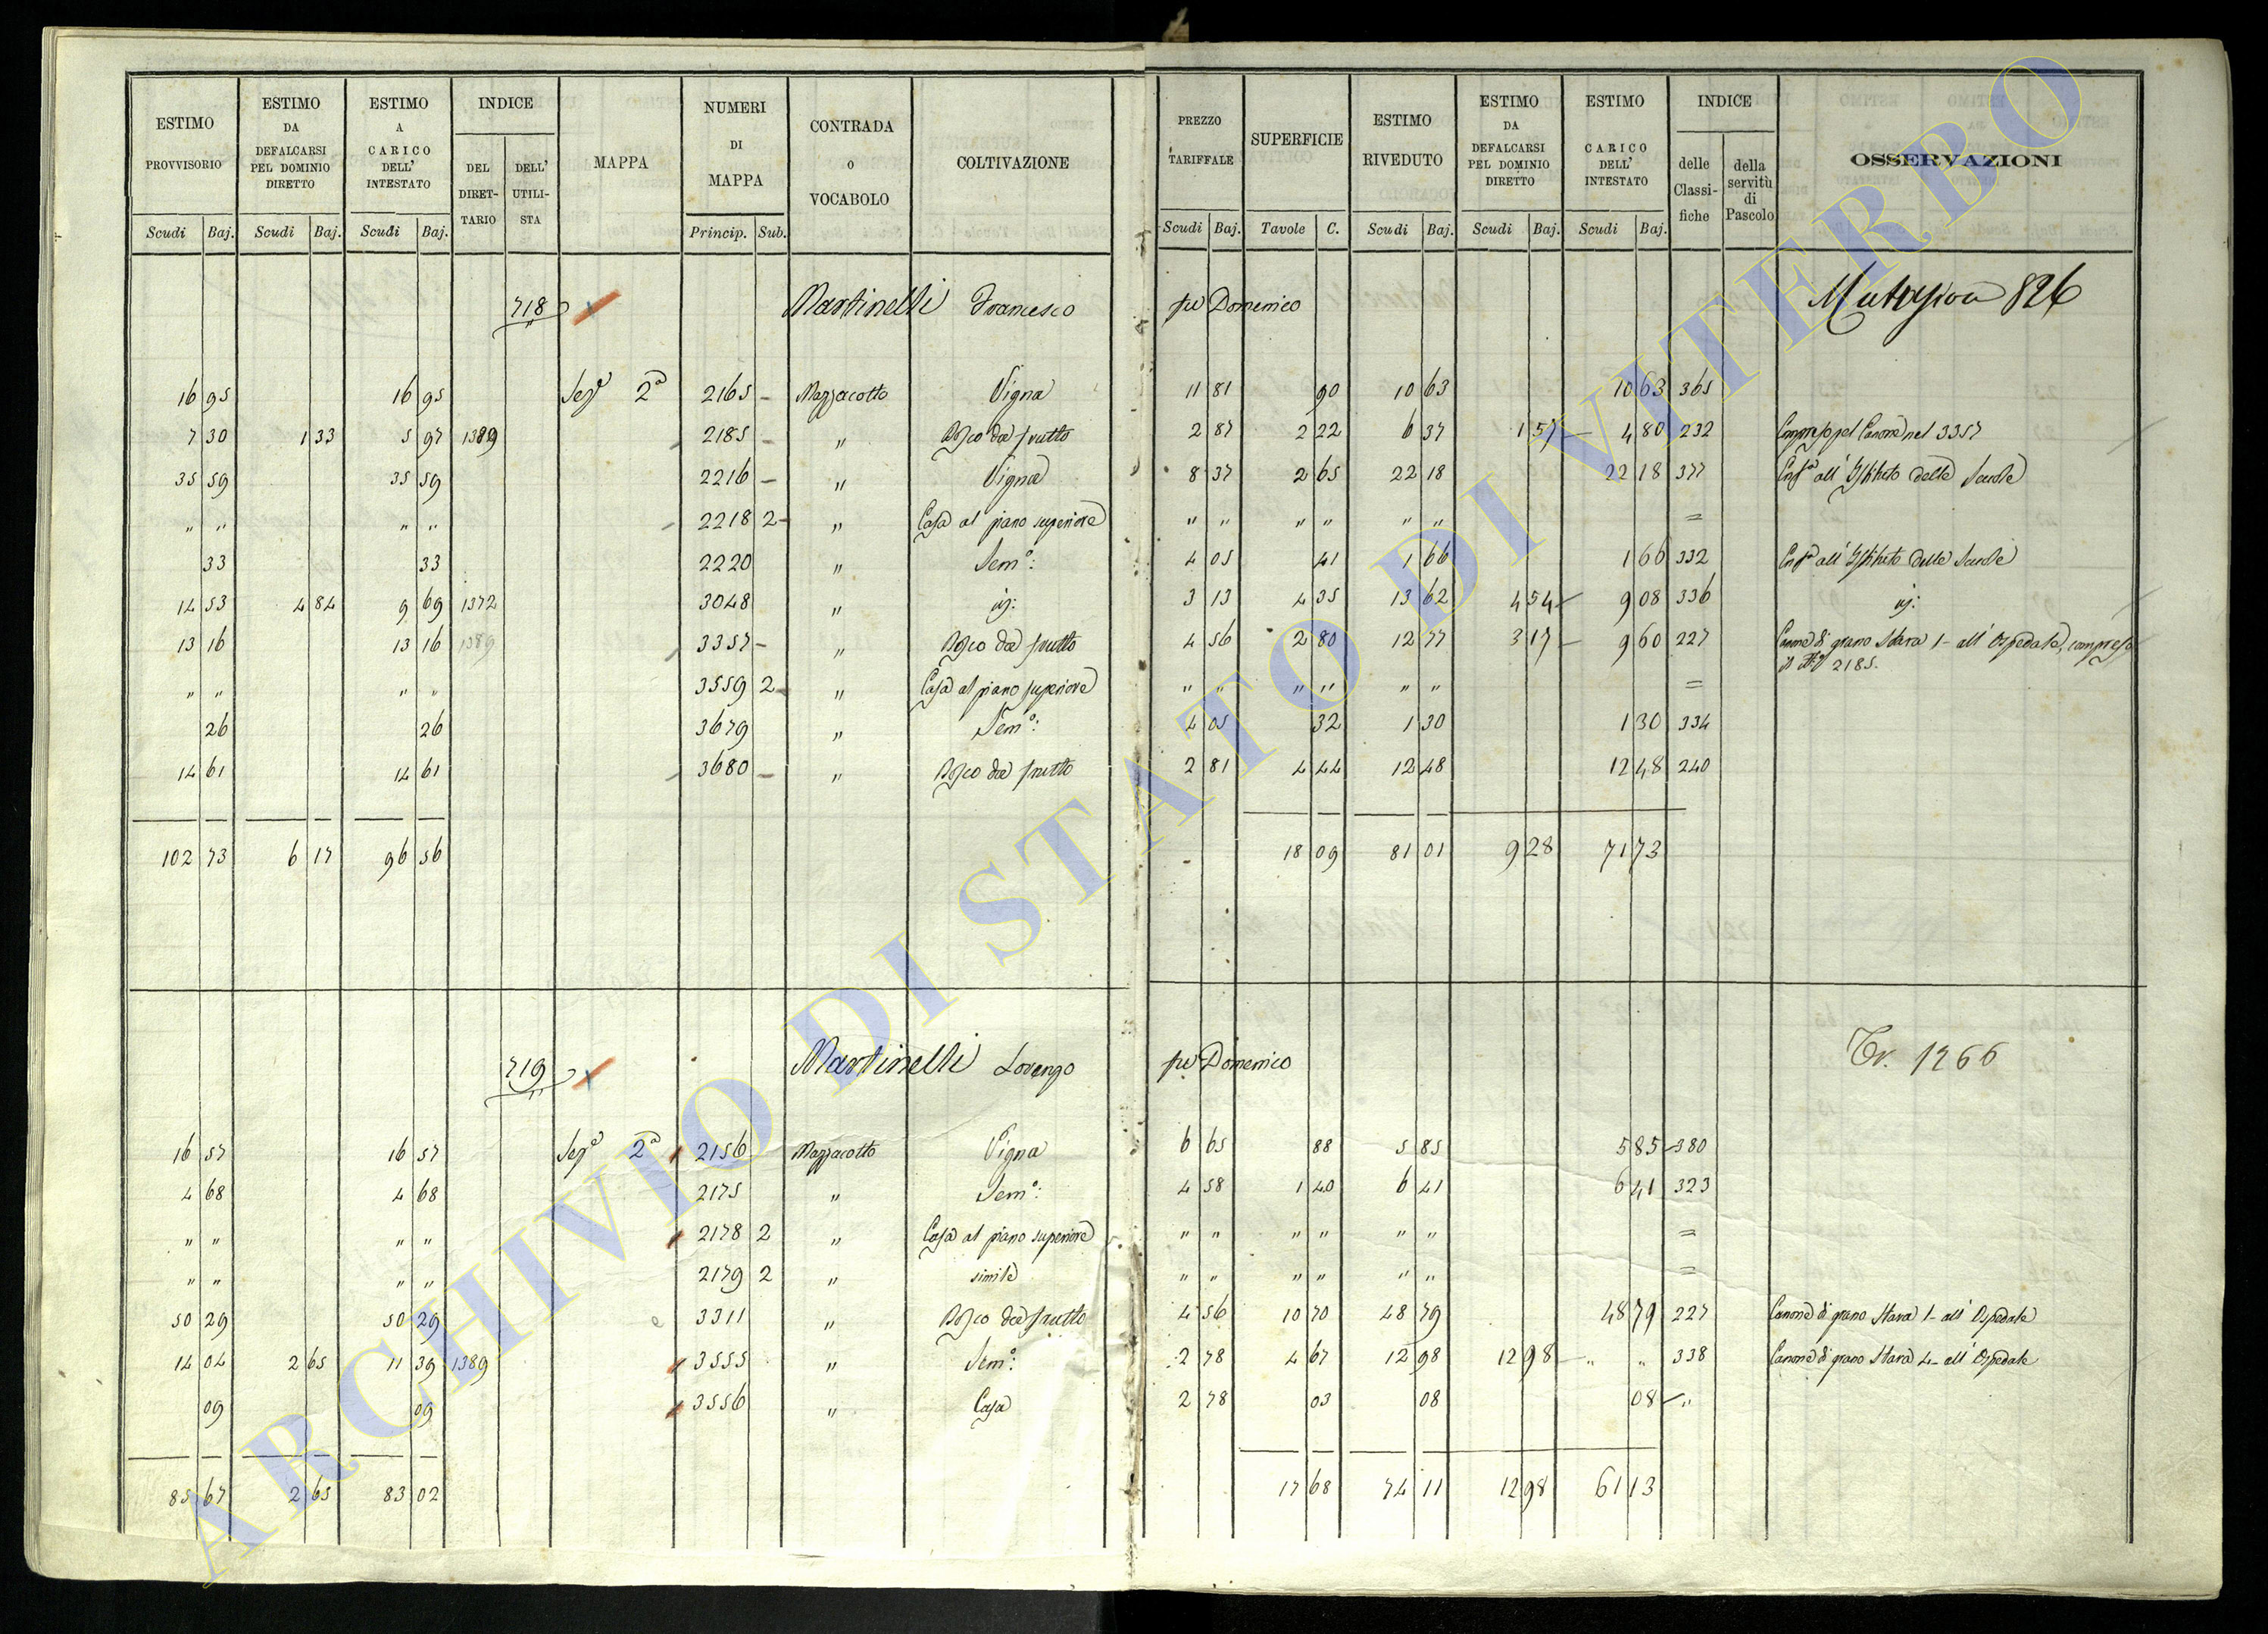 ESTIMO PROVVISORIO | ESTIMO DA DEFALCARSI PEL DOMINIO DIRETTO | ESTIMO A CARICO DELL' INTESTATO | INDICE | MAPPA | NUMERI DI MAPPA | CONTRADA O VOCABOLO | COLTIVAZIONE | PREZZO TARIFFALE | SUPERFICIE | ESTIMO RIVEDUTO | ESTIMO DA DEFALCARSI PEL DOMINIO DIRETTO | ESTIMO A CARICO DELL' INTESTATO | INDICE | OSSERVAZIONI
DEL DIRET-TARIO | DELL' UTILI-STA | delle Classi-fiche | della servitù di Pascolo
Scudi | Baj. | Scudi | Baj. | Scudi | Baj. | Princip. | Sub. | Scudi | Baj. | Tavole | C. | Scudi | Baj. | Scudi | Baj. | Scudi | Baj.
718 Martinelli Francesco fu Domenico 826
16 95 | 16 95 | Sezᵉ 2ª | 2165 – | Mazzacotto | Vigna | 11 81 | 90 | 10 63 | 10 63 | 365
7 30 | 1 33 | 5 97 | 1389 | 2185 – | " | Bosco da frutto | 2 87 | 2 22 | 6 37 | 1 57 – | 4 80 | 232 | Compreso pel Canone nel 3357
35 59 | 35 59 | 2216 – | " | Vigna | 8 37 | 2 65 | 22 18 | 22 18 | 377 | all' Istituto delle Scuole
" " | " " | 2218 | 2 – | " | Casa al piano superiore | " " | " " | " " | =
33 | 33 | 2220 | " | Semº: | 4 05 | 41 | 1 66 | 1 66 | 332 | all' Istituto delle Scuole
14 53 | 4 84 | 9 69 | 1372 | 3048 | " | 3 13 | 4 35 | 13 62 | 4 54 | 9 08 | 336
13 16 | 13 16 | 1389 | 3357 – | " | Bosco da frutto | 4 56 | 2 80 | 12 77 | 3 17 – | 9 60 | 227 | Canone di grano Stara 1 – all' Ospedale, compreso
il 2185.
" " | " " | 3559 | 2 – | " | Casa al piano superiore | " " | " " | " " | =
26 | 26 | 3679 | " | Semº: | 4 05 | 32 | 1 30 | 1 30 | 334
14 61 | 14 61 | 3680 – | " | Bosco da frutto | 2 81 | 4 44 | 12 48 | 12 48 | 240
102 73 | 6 17 | 96 56 | 18 09 | 81 01 | 9 28 | 71 73
719 Martinelli Lorenzo fu Domenico Tr. 1266
16 57 | 16 57 | Sezᵉ 2ª | 2156 | Mazzacotto | Vigna | 6 65 | 88 | 5 85 | 5 85 | 380
4 68 | 4 68 | 2175 | " | Semº: | 4 58 | 1 40 | 6 41 | 6 41 | 323
" " | " " | 2178 | 2 | " | Casa al piano superiore | " " | " " | " " | =
" " | " " | 2179 | 2 | " | simile | " " | " " | " " | =
50 29 | 50 29 | 3311 | " | Bosco da frutto | 4 56 | 10 70 | 48 79 | 48 79 | 227 | Canone di grano Stara 1 – all' Ospedale
14 04 | 2 65 | 11 39 | 1389 | 3555 | " | Semº: | 2 78 | 4 67 | 12 98 | 12 98 – | " " | 338 | Canone di grano Stara 4 – all' Ospedale
09 | 09 | 3556 | " | Casa | 2 78 | 03 | 08 | 08 | "
85 67 | 2 65 | 83 02 | 17 68 | 74 11 | 12 98 | 61 13
ARCHIVIO DI STATO DI VITERBO